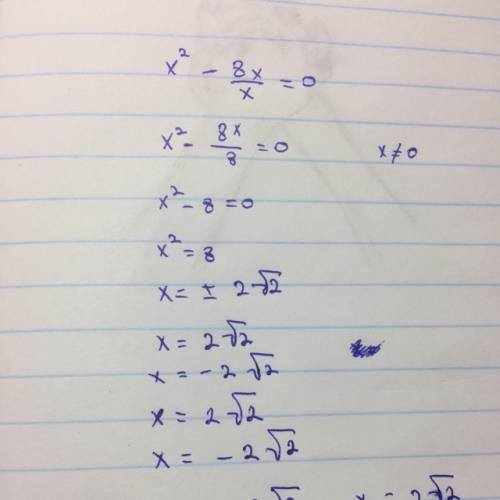 x² - 8x/x = 0
x² - 8x/8 = 0 x ≠ 0
x² - 8 = 0
x² = 8
x = ± 2√2
x = 2√2
x = -2√2
x = 2√2
x = -2√2
x = 2√2